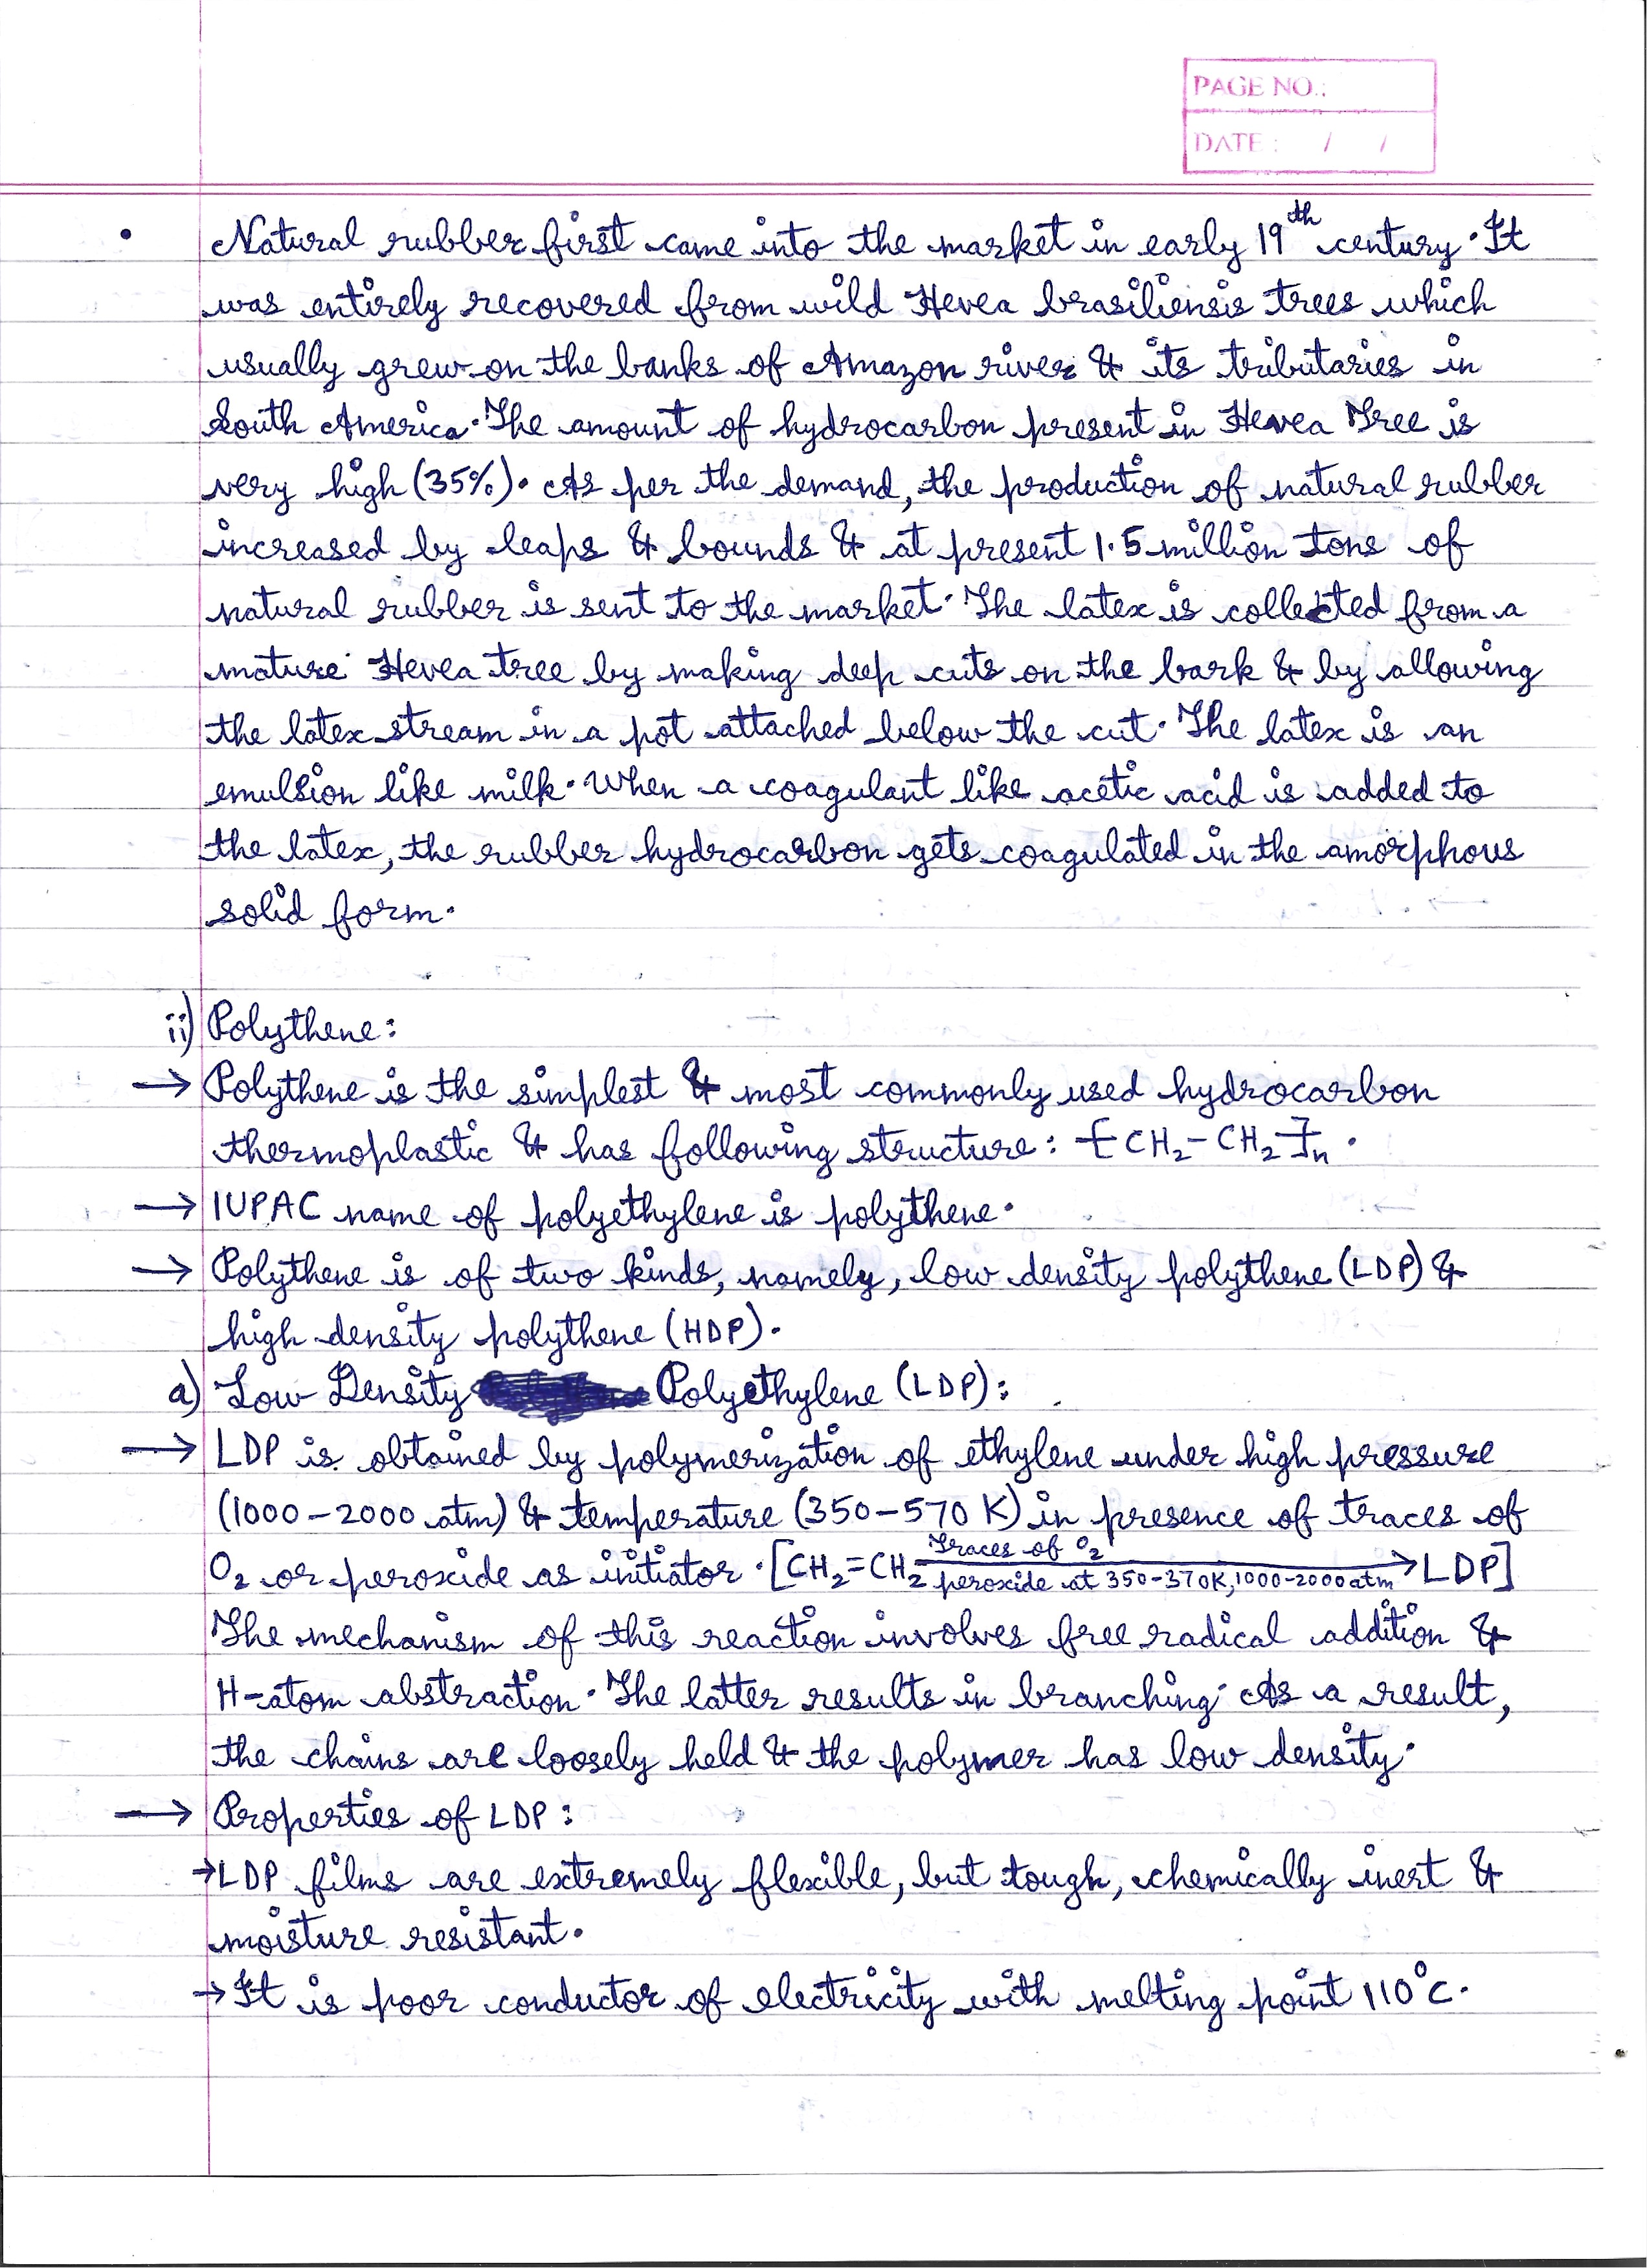 PAGE NO.:
DATE : / /
• Natural rubber first came into the market in early 19th century. It
was entirely recovered from wild Hevea brasiliensis trees which
usually grew on the banks of Amazon river & its tributaries in
South America. The amount of hydrocarbon present in Hevea Tree is
very high (35%). As per the demand, the production of natural rubber
increased by leaps & bounds & at present 1.5 million tons of
natural rubber is sent to the market. The latex is collected from a
mature Hevea tree by making deep cuts on the bark & by allowing
the latex stream in a pot attached below the cut. The latex is an
emulsion like milk. When a coagulant like acetic acid is added to
the latex, the rubber hydrocarbon gets coagulated in the amorphous
solid form.
ii) Polythene:
→ Polythene is the simplest & most commonly used hydrocarbon
thermoplastic & has following structure: -[CH₂-CH₂-]n.
→ IUPAC name of polyethylene is polythene.
→ Polythene is of two kinds, namely, low density polythene (LDP) &
high density polythene (HDP).
a) Low Density Polyethylene (LDP):
→ LDP is obtained by polymerization of ethylene under high pressure
(1000-2000 atm) & temperature (350-570 K) in presence of traces of
Traces of O₂
O₂ or peroxide as initiator. [CH₂=CH₂ → LDP]
peroxide at 350-370K, 1000-2000 atm
The mechanism of this reaction involves free radical addition &
H-atom abstraction. The latter results in branching. As a result,
the chains are loosely held & the polymer has low density.
→ Properties of LDP:
→ LDP films are extremely flexible, but tough, chemically inert &
moisture resistant.
→ It is poor conductor of electricity with melting point 110°C.